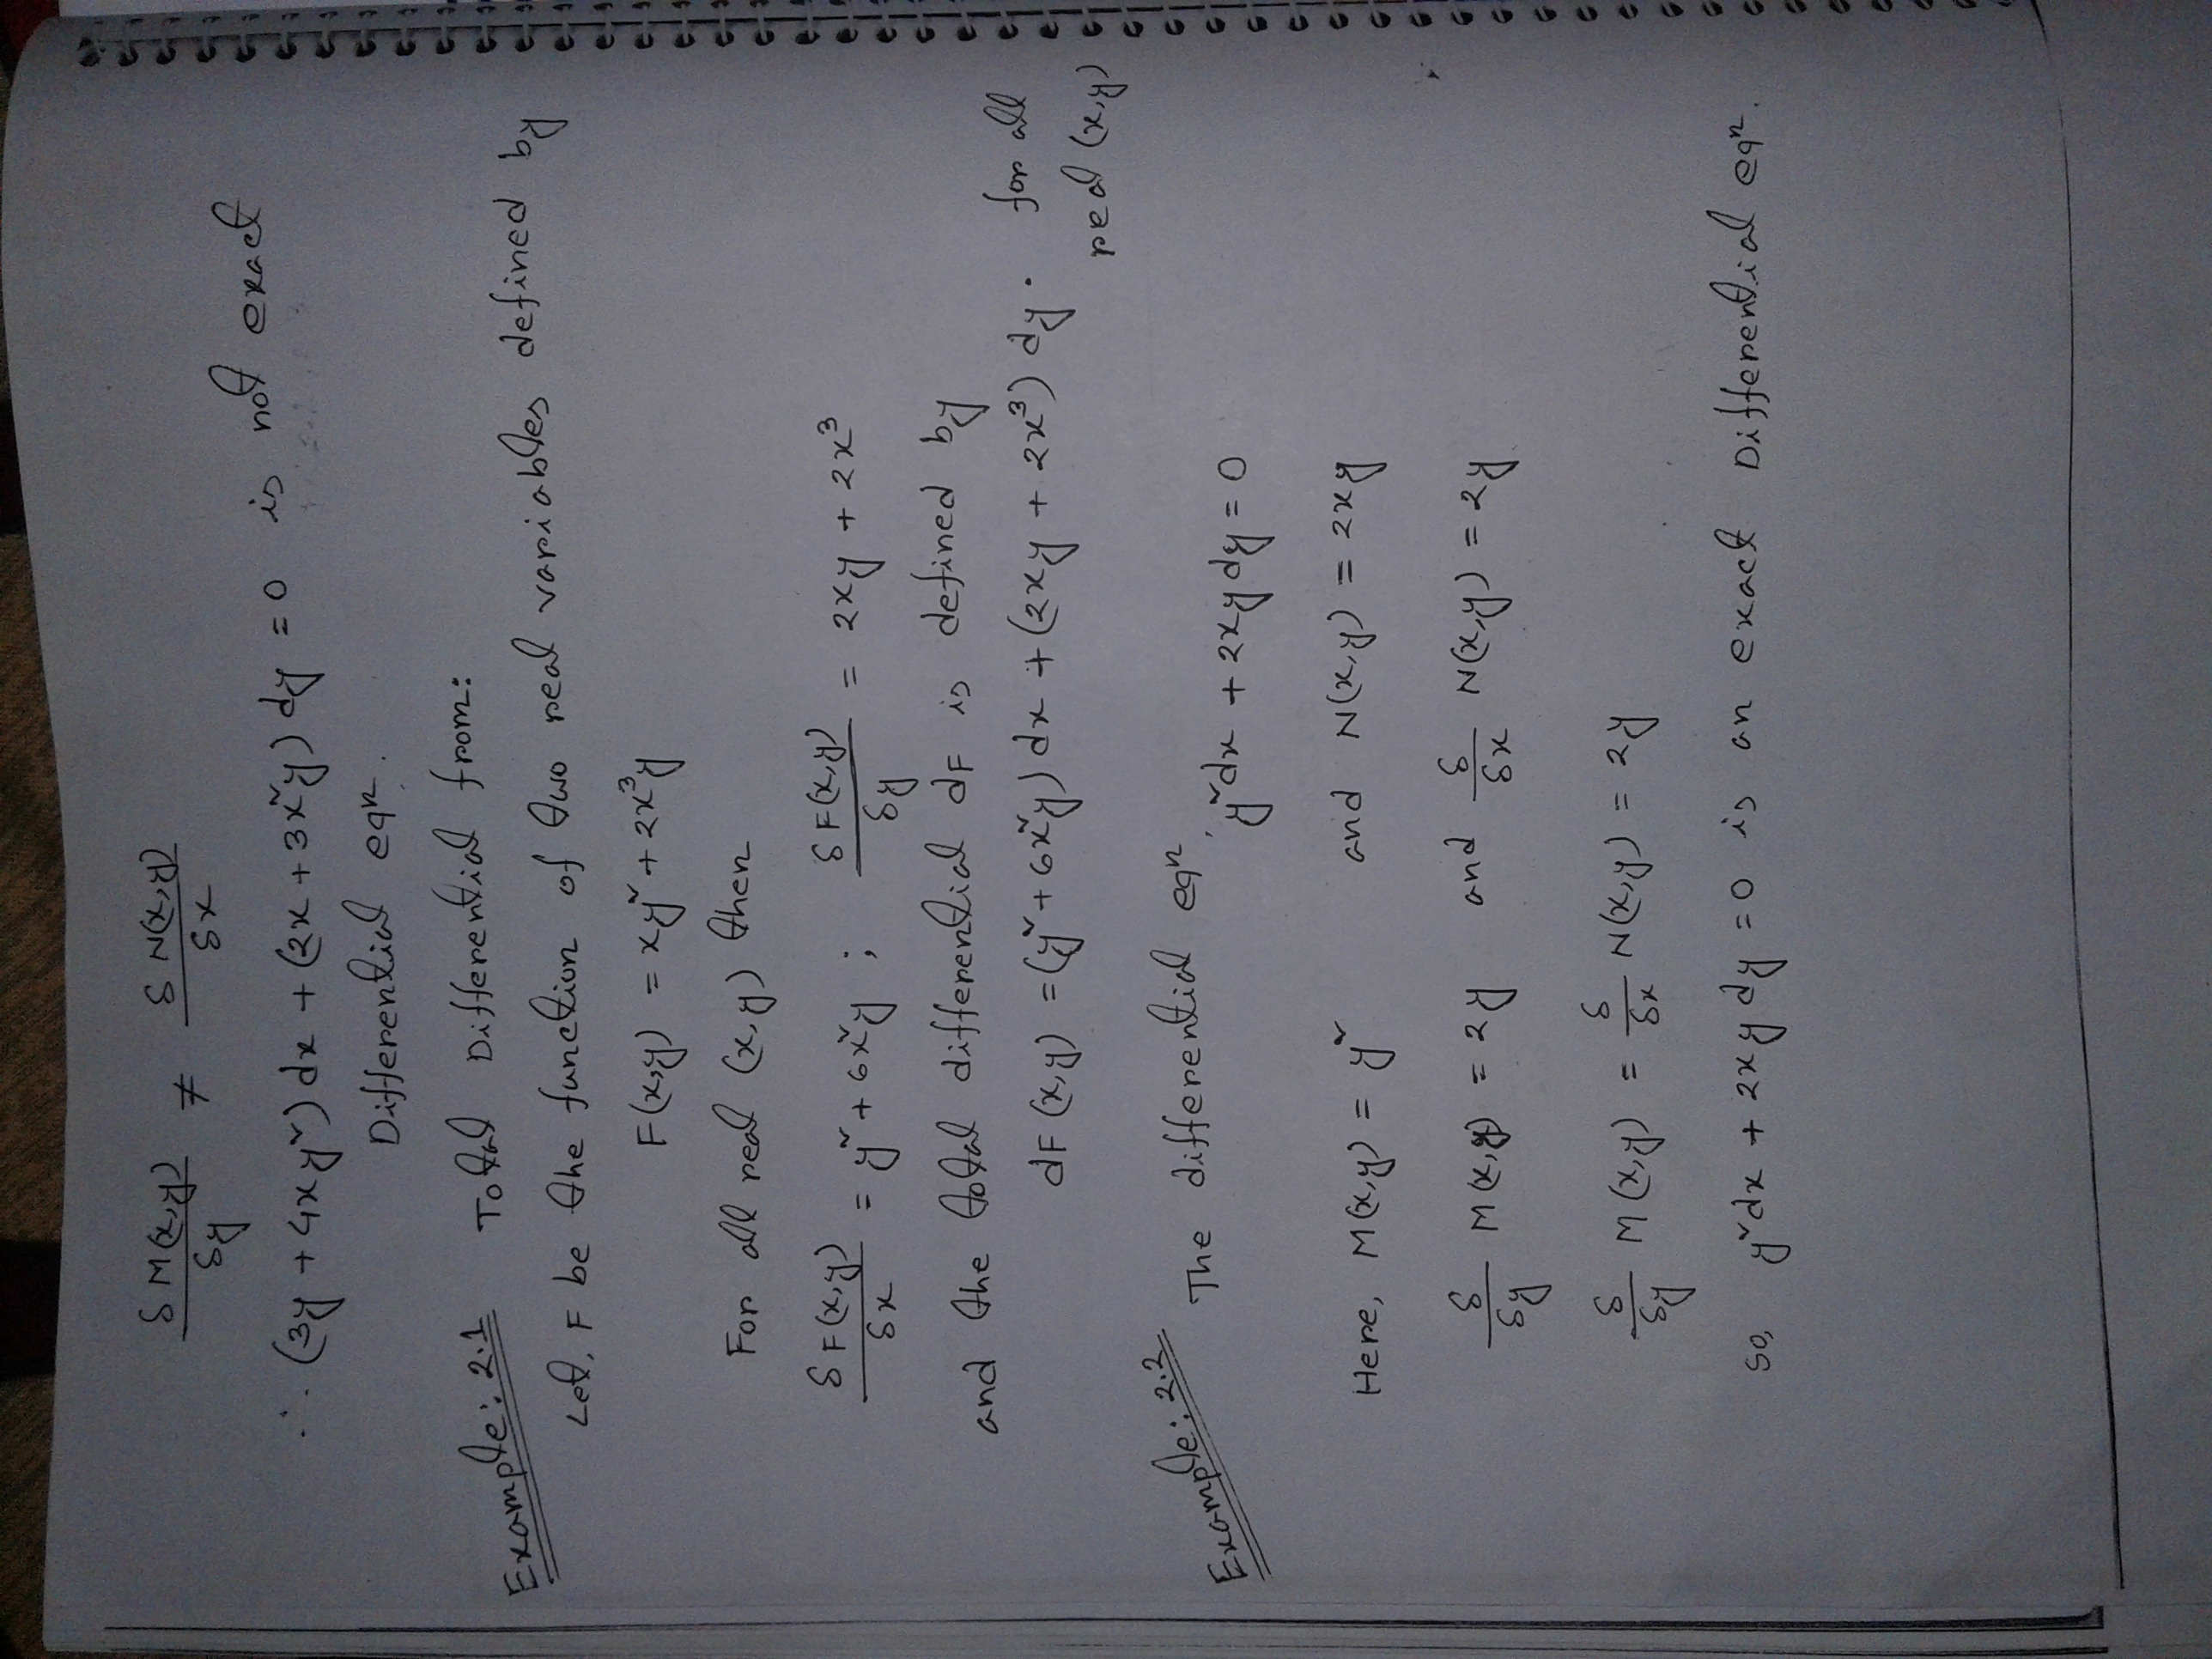 δM(x,y)/δy ≠ δN(x,y)/δx
∴ (3y + 4xy²) dx + (2x + 3x²y) dy = 0 is not exact
Differential eqn.
Example: 2.1 Total Differential from:
Let, F be the function of two real variables defined by
F(x,y) = xy² + 2x³y
For all real (x,y) then
δF(x,y)/δx = y² + 6x²y ; δF(x,y)/δy = 2xy + 2x³
and the total differential dF is defined by
dF(x,y) = (y² + 6x²y) dx + (2xy + 2x³) dy. for all
real (x,y)
Example: 2.2 The differential eqn,
y²dx + 2xy dy = 0
Here, M(x,y) = y² and N(x,y) = 2xy
δ/δy M(x,y) = 2y and δ/δx N(x,y) = 2y
δ/δy M(x,y) = δ/δx N(x,y) = 2y
So, y²dx + 2xy dy = 0 is an exact Differential eqn.